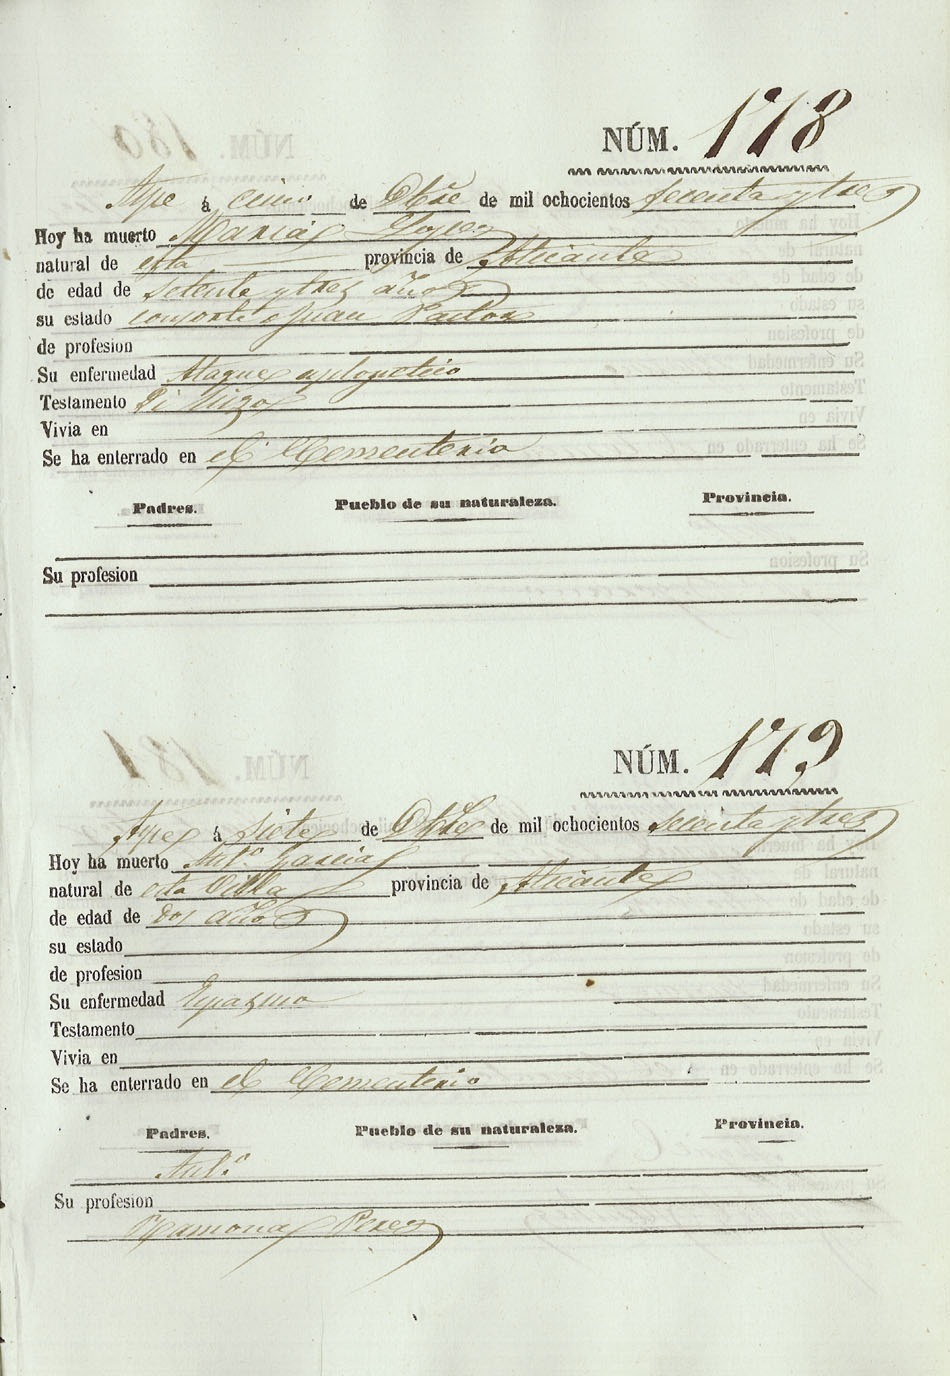 NÚM. 178
Aspe á cinco de Obre de mil ochocientos sesenta y tres
Hoy ha muerto Maria Lopez
natural de esta provincia de Alicante
de edad de setenta y tres años
su estado consorte de Juan Pastor
de profesion
Su enfermedad Ataque apopletico
Testamento Si hizo
Vivia en
Se ha enterrado en el Cementerio
Padres. Pueblo de su naturaleza. Provincia.
Su profesion
NÚM. 179
Aspe á siete de de mil ochocientos sesenta y tres
Hoy ha muerto Antº Garcia
natural de esta Villa provincia de Alicante
de edad de dos años
su estado
de profesion
Su enfermedad Espasmo
Testamento
Vivia en
Se ha enterrado en el Cementerio
Padres. Pueblo de su naturaleza. Provincia.
Antº
Su profesion
Ramona Perez